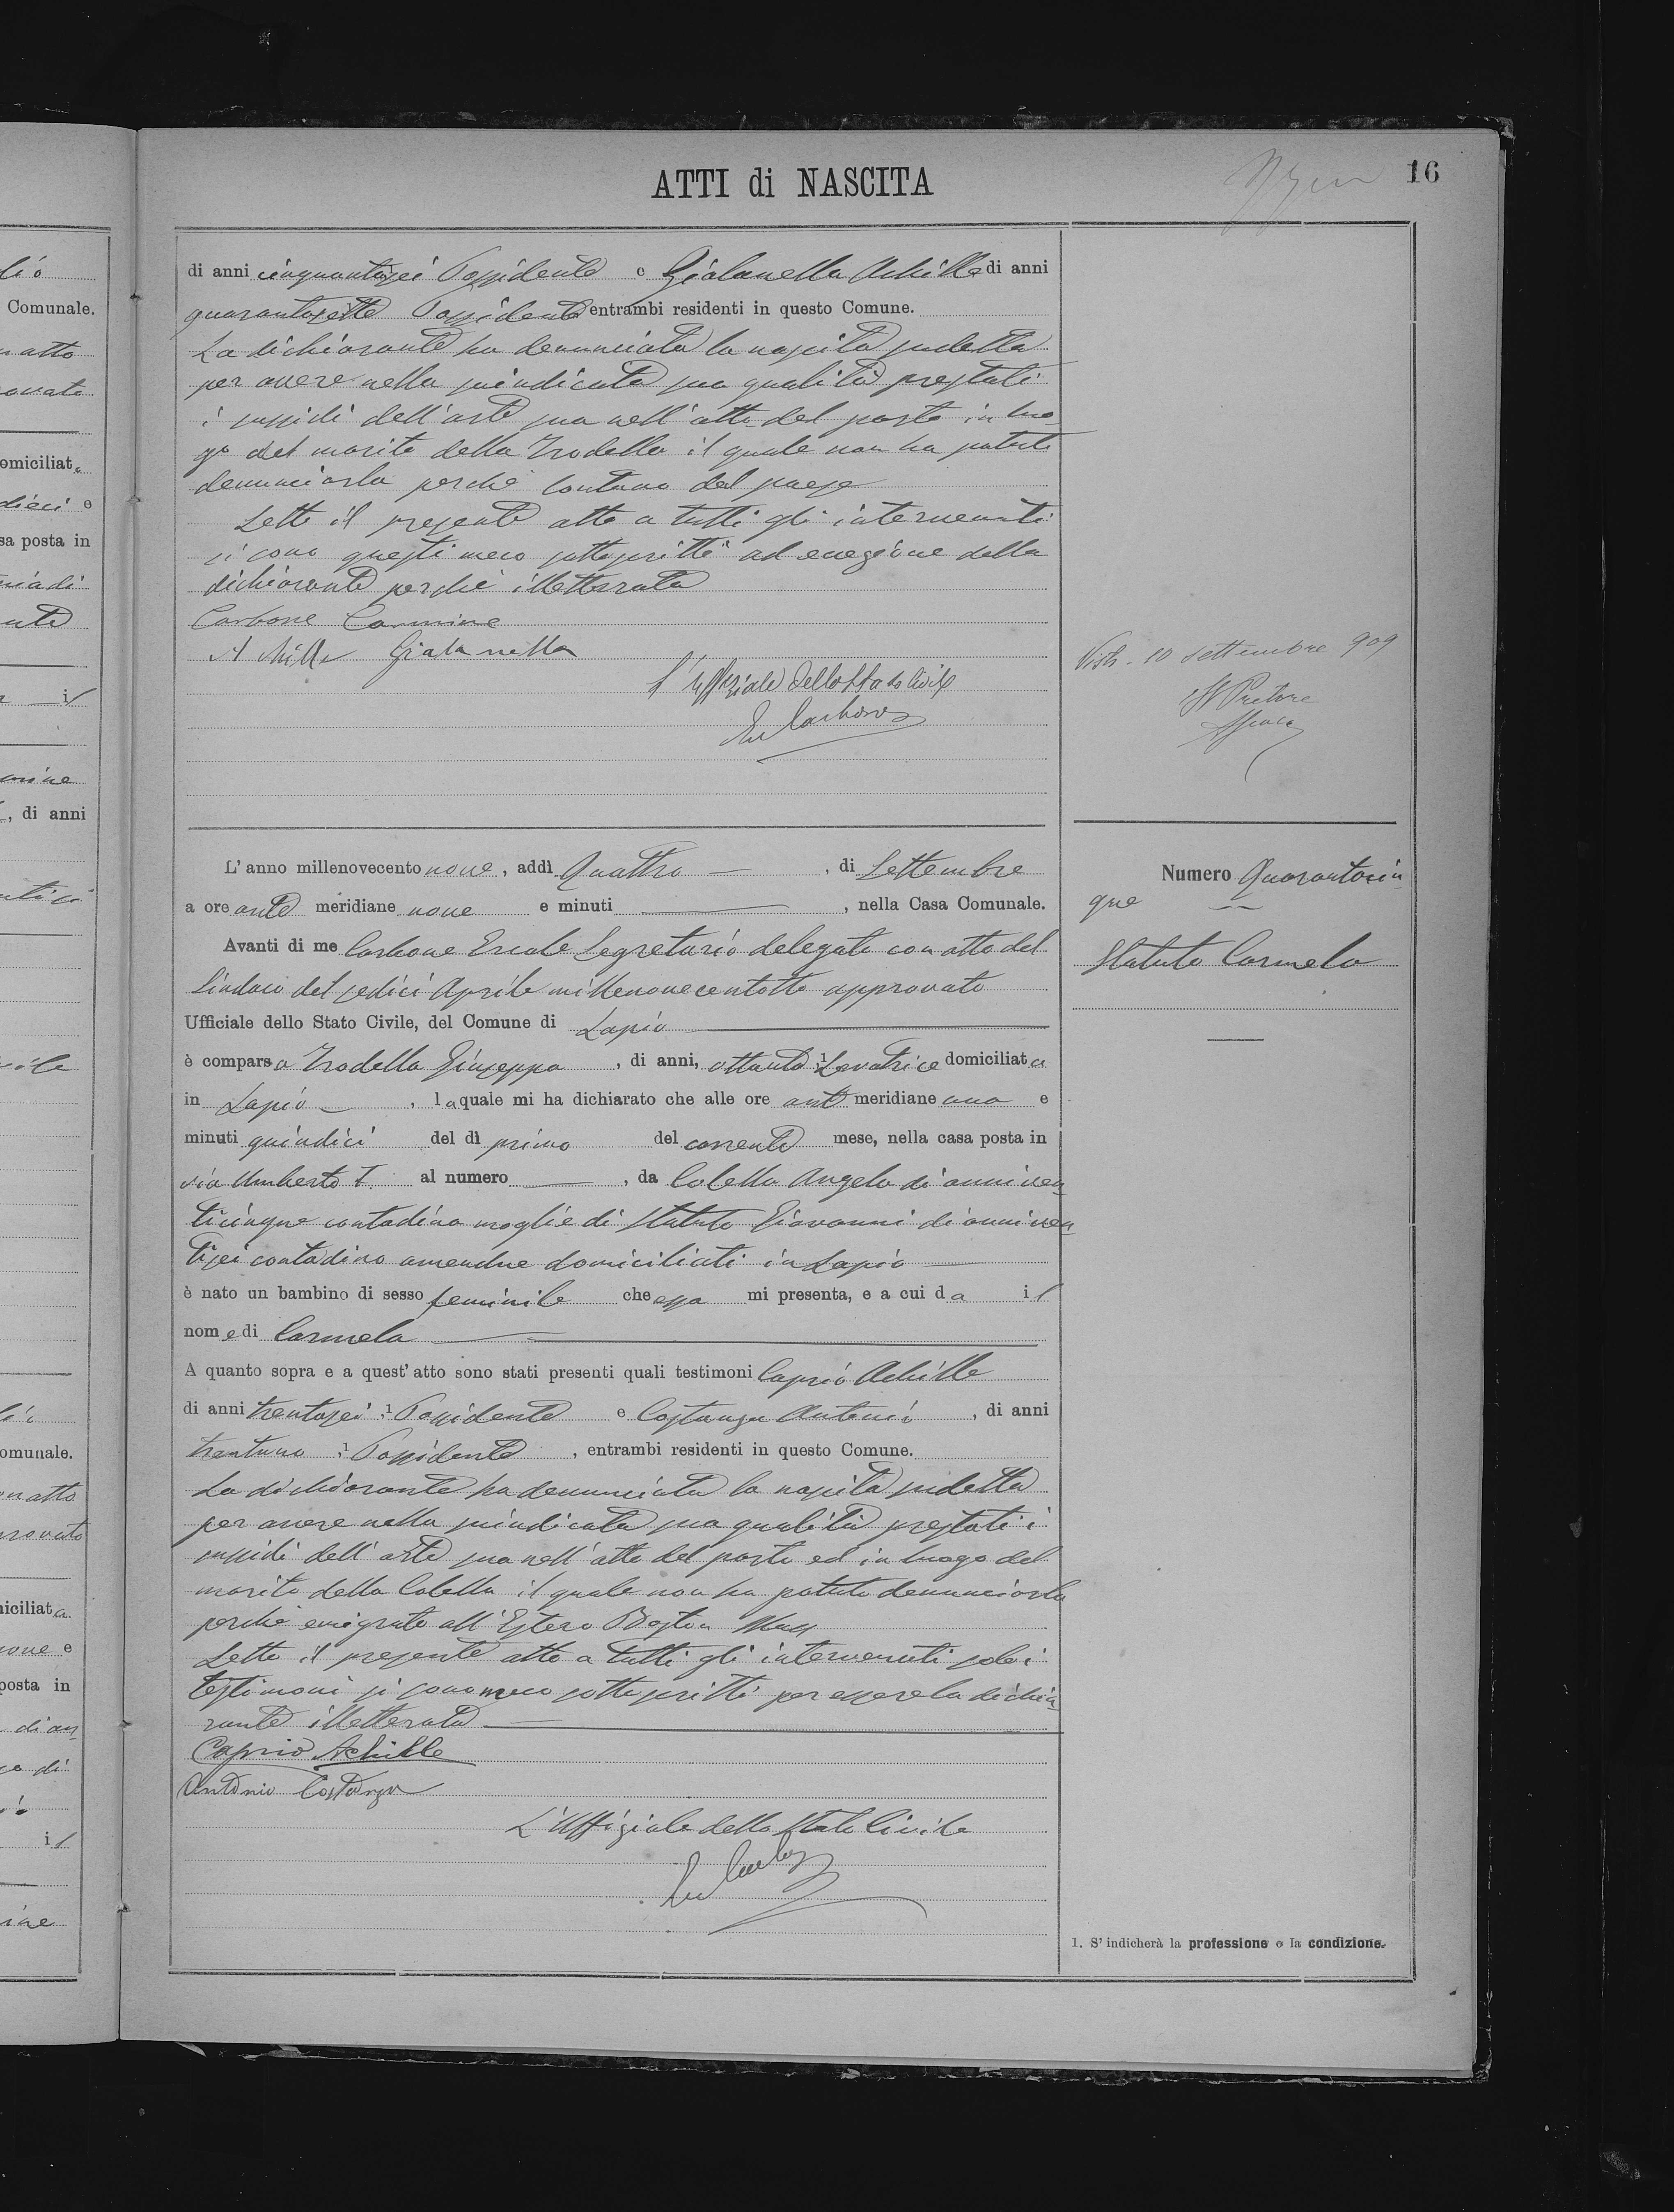 ATTI di NASCITA
16
di anni cinquantasei Possidente e Gialanella Achille di anni
quarantasette Possidente entrambi residenti in questo Comune.
La dichiarante ha denunciata la nascita sudetta
per avere nella suindicata sua qualità prestati
i sussidi dell'arte sua nell'atto del parto in luo
go del marito della Trodella il quale non ha potuto
denunciarla perchè lontano dal paese
Letto il presente atto a tutti gli intervenuti
si sono questi meco sottoscritti ad eccezione della
dichiarante perchè illetterata
Carbone Carmine
Achille Gialanella
L'Uffiziale dello Stato Civile
Carbone
Visto. 10 Settembre 909
Il Pretore
L'anno millenovecento nove, addì Quattro, di Settembre
a ore ante meridiane nove e minuti, nella Casa Comunale.
Avanti di me Carbone Ercole Segretario delegato con atto del
Sindaco del sedici Aprile millenovecentotto approvato
Ufficiale dello Stato Civile, del Comune di Lapio
è comparsa Trodella Giuseppa, di anni, ottanta 1 Levatrice domiciliata
in Lapio, la quale mi ha dichiarato che alle ore ant meridiane una e
minuti quindici del dì primo del corrente mese, nella casa posta in
via Umberto I. al numero, da Colella Angela di anni ven
ticinque contadina moglie di Statuto Giovanni di anni ven
tisei contadino amendue domiciliati in Lapio
è nato un bambino di sesso feminile che essa mi presenta, e a cui da il
nome di Carmela
A quanto sopra e a quest'atto sono stati presenti quali testimoni Caprio Achille
di anni trentasei 1 Possidente e Costanza Antonio, di anni
trentuno 1 Possidente, entrambi residenti in questo Comune.
La dichiarante ha denunciata la nascita sudetta
per avere nella suindicata sua qualità prestati i
sussidi dell'arte sua nell'atto del parto ed in luogo del
marito della Colella il quale non ha potuto denunciarla
perchè emigrato all'Estero Boston Mass
Letto il presente atto a tutti gli intervenuti solo i
testimoni si sono meco sottoscritti per essere la dichia
rante illetterata
Caprio Achille
Antonio Costanza
L'Uffiziale dello Stato Civile
Numero Quarantacin
que
Statuto Carmela
1. S'indicherà la professione o la condizione.